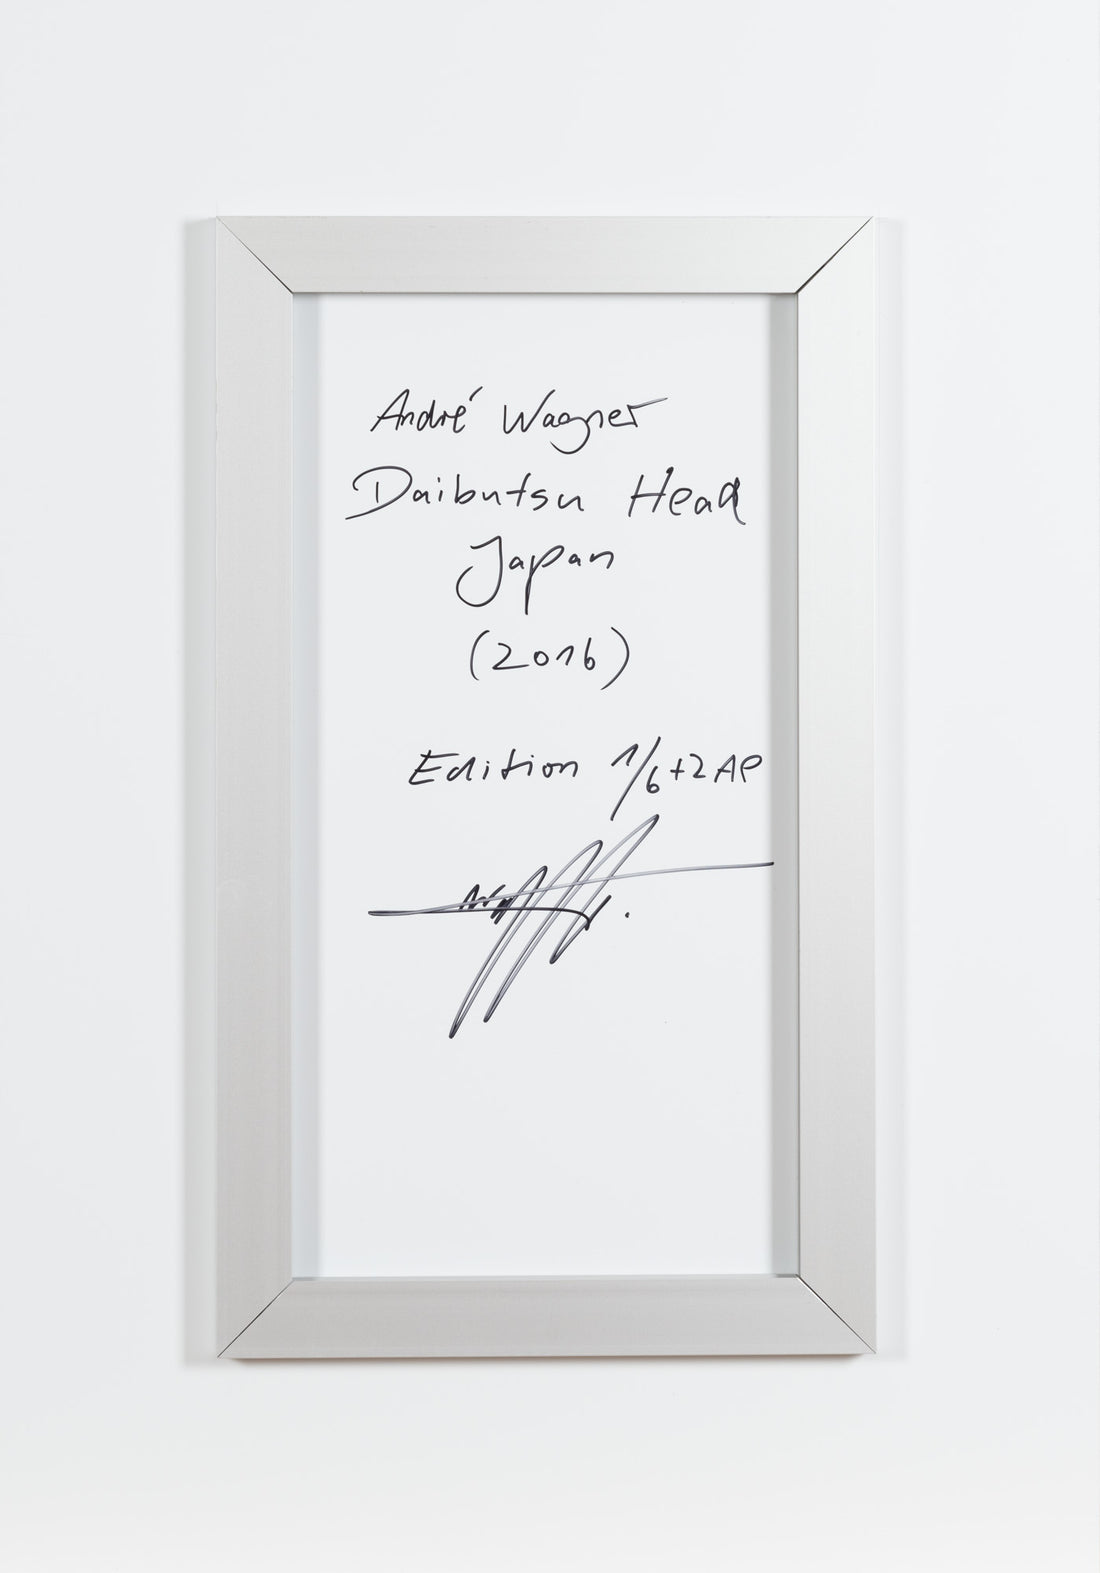 André Wagner
Daibutsu Head
Japan
(2016)
Edition 1/6 +2 AP